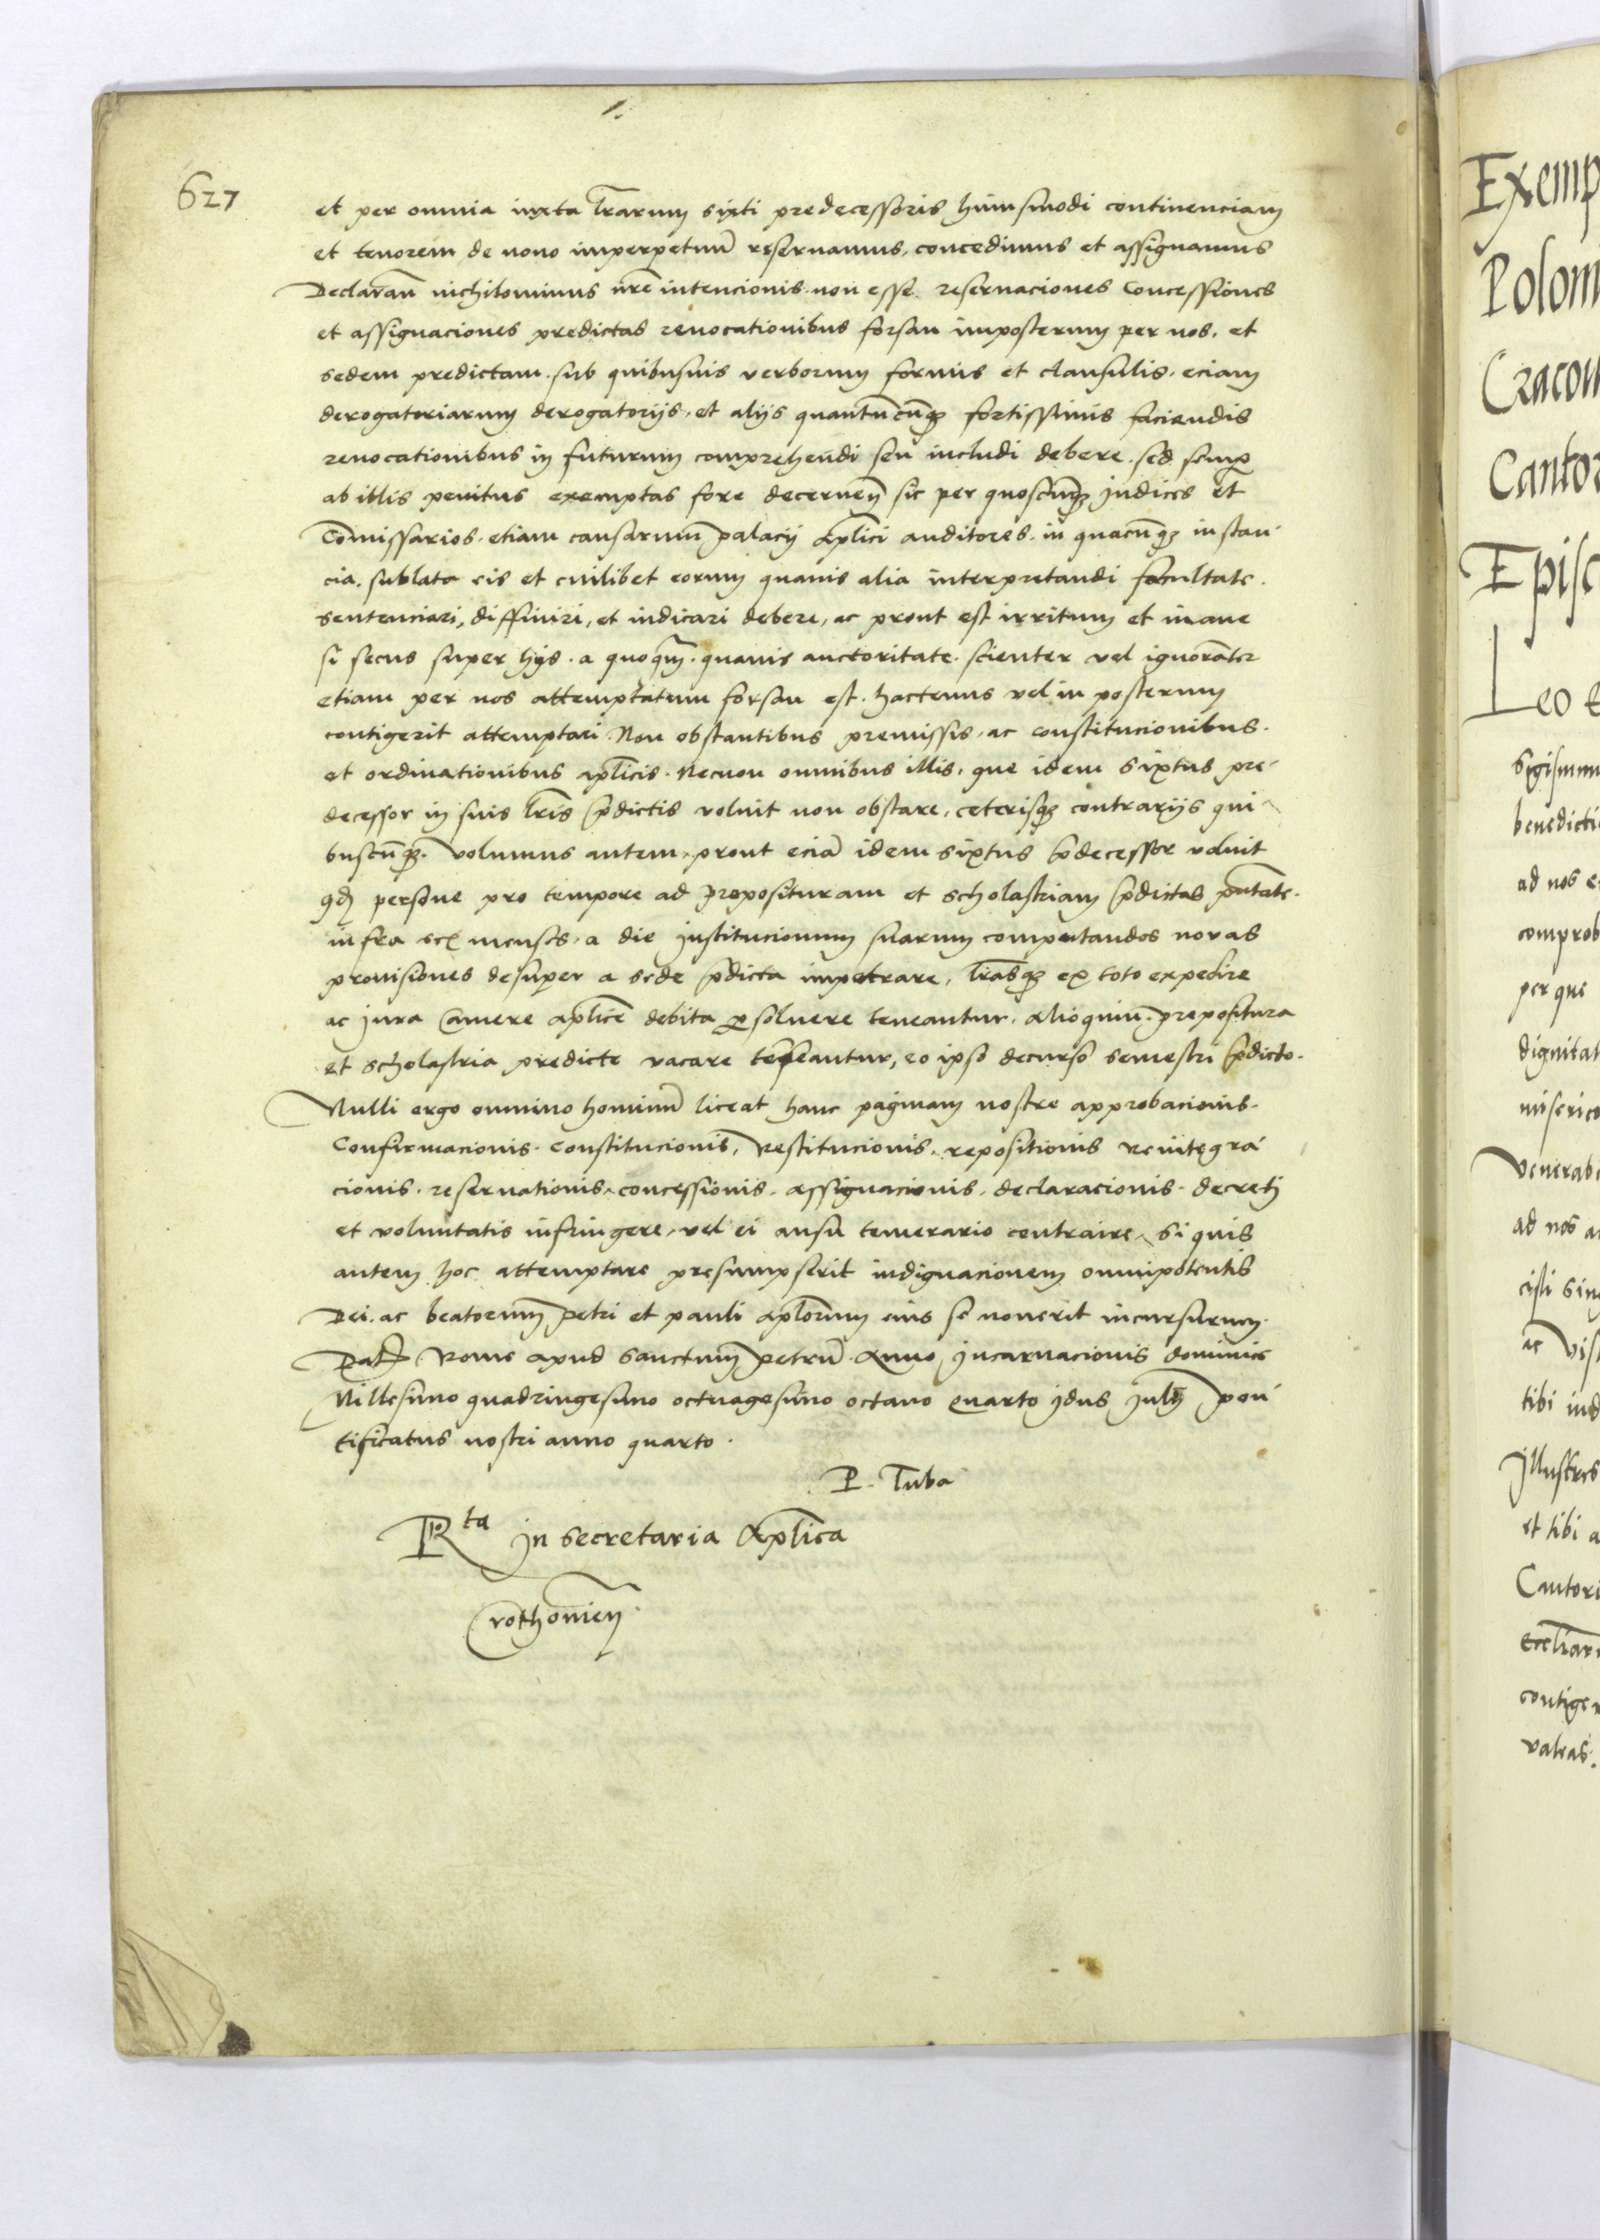 627
et per omnia iuxta lrarum sixti predecessoris huiusmodi continenciam
et tenorem de nouo imperpetuum reseruamus, concedimus et assignamus
Declaran nichilominus nre intencionis non esse reseruaciones Concessiones
et assignaciones predictas reuocationibus forsan imposterum per nos, et
sedem predictam sub quibusuis verborum formis et clausulis, eciam
derogatoriarum derogatorijs, et alijs quantucunqz fortissimis faciendis
reuocationibus in futurum comprehendi seu includi debere. sed semp
ab illis penitus exemptas fore decernen sic per quoscunqz Judices et
Comissarios, etiam causarum palacij Aplici auditores, in quacunqz instan
cia, sublata eis et cuilibet eorum quauis alia interpretandi facultate.
sentenciari, diffiniri, et iudicari debere, ac prout est irritum et inane
si secus super hijs a quoqm quauis auctoritate scienter vel ignoranter
etiam per nos attemptatum forsan est hactenus vel in posterum
contigerit attemptari. Non obstantibus premissis, ac constitucionibus
et ordinationibus aplicis. Necnon omnibus illis, que idem Sixtus pre
decessor in suis lris pdictis voluit non obstare, ceterisqz contrarijs qui
buscunqz. Volumus autem, prout ecia idem sixtus pdecessor voluit
qd persone pro tempore ad preposituram et scholastriam pdictas pntate
infra sex menses, a die institucionum suarum computandos nouas
prouisiones desuper a sede pdicta impetrare, lrasqz ex toto expedire
ac Jura Camere aplice debita psoluere teneantur. Alioquin prepositura
et scholastria predicte vacare censeantur, eo ipso decurso semestri pdicto.
Nulli ergo omnino hominum liceat hanc paginam nostre approbacionis
Confirmacionis Constitucionis, Restitucionis, repositionis reintegra
cionis, reseruationis, concessionis, assignacionis, declaracionis decreti
et voluntatis infringere, vel ei ausu temerario contraire, Si quis
autem hoc attemptare presumpserit indignacionem omnipotentis
Dei, ac beatorum petri et pauli aplorum eius se nouerit incursurum.
Dat Rome apud Sanctum petrum Anno Incarnacionis dominice
Millesimo quadringesimo octuagesimo octauo Quarto Idus Julij pon
tificatus nostri anno quarto.
P. Tuba
Rta in secretaria Aplica
Exemp
Polon
Cracou
Cantor
Episc
Leo E
Sigismun
benedicti
ad nos e
comprob
per que
dignitat
miserico
Venerab
ad nos a
cisti sin
ac vis
tibi ind
Illustres
et tibi a
Cantori
eccliar
contiger
valeas.